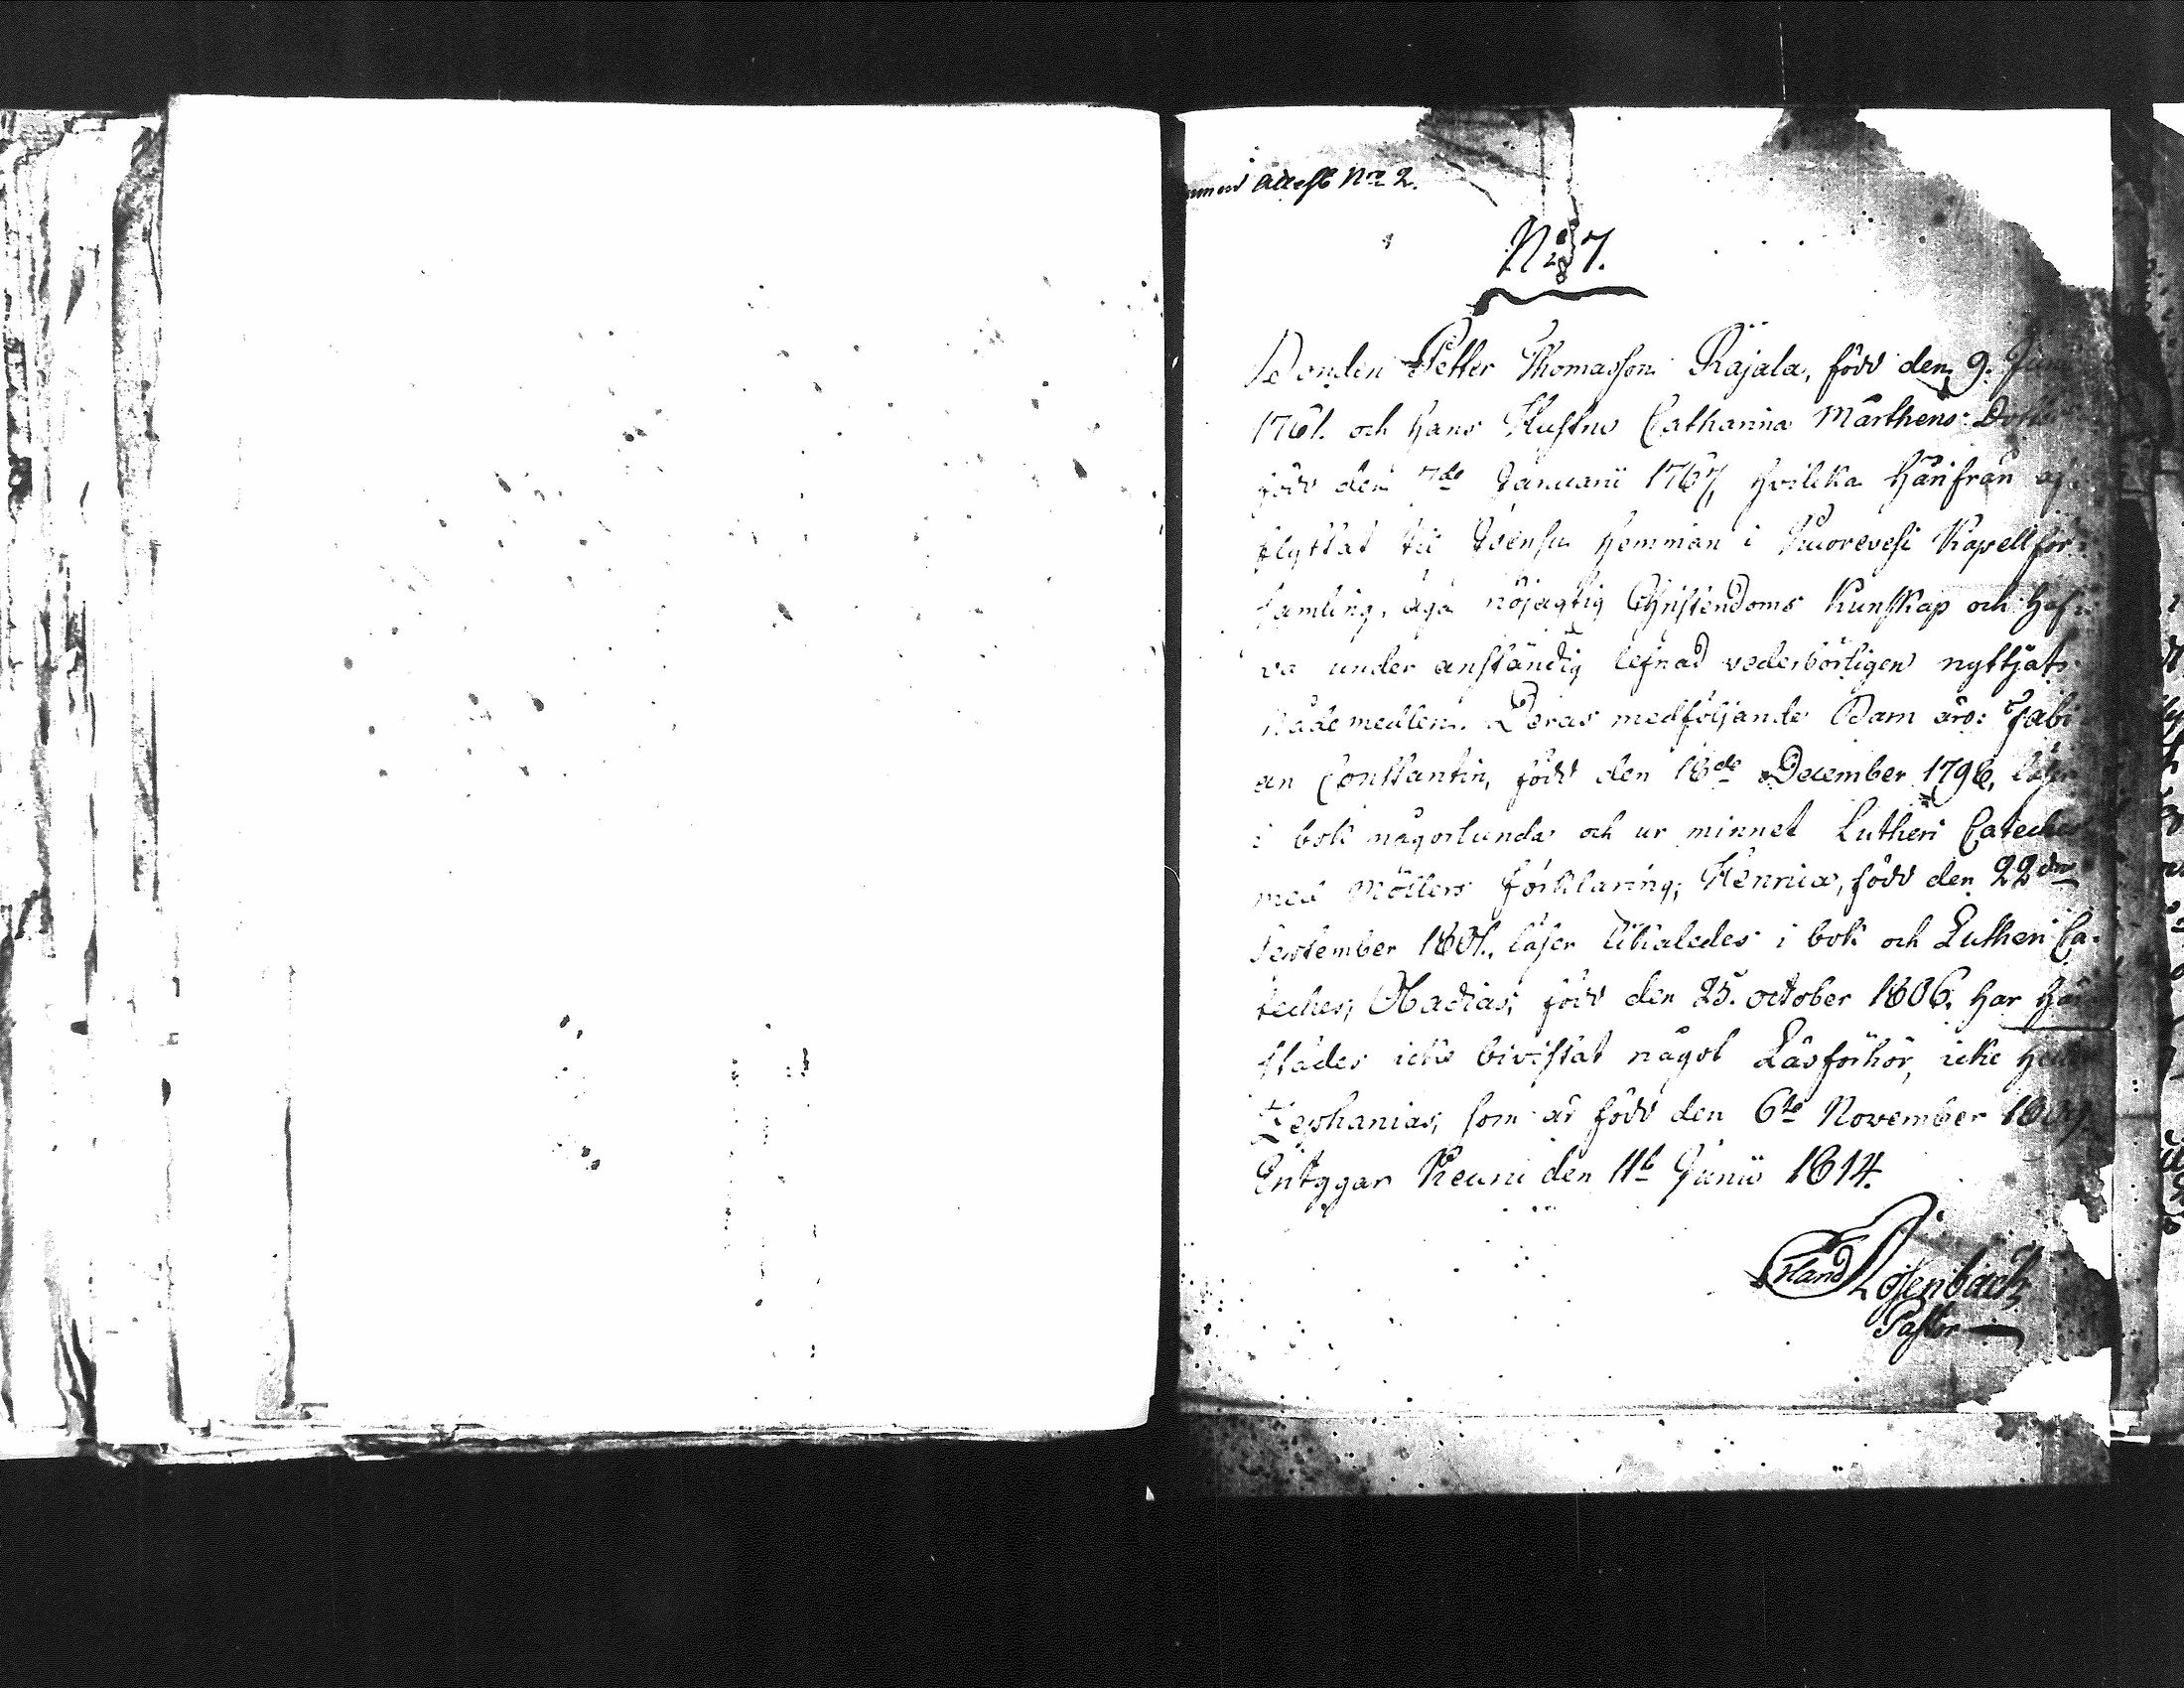 Attest No 2.
No 7.
Bonden Petter Thomasson Rajala, född den 9. Juni
1761. och hans Hustru Catharina Mårthens Dotter
född den 7de Januarii 1767, hvilka härifrån af-
flyttat till hemman i Kuorevesi Kapellför-
samling, äga nöjagtig Christendoms kunskap och haf-
va under anständig lefnad vederbörligen nyttjat
nådemedlen. Deras medföljande Barn äro: Fabi-
an Constantin, född den 18de December 1796, läser
i bok någorlunda och ur minnet Lutheri Cateches
med Möllers förklaring; Henrica, född den 22dra
September 1801., läser likaledes i bok och Lutheri Ca-
teches; Obadias, född den 25. october 1806. har här-
städes icke bivistat något Läsförhör, icke heller
Zephanias, som är född den 6te November 1809.
Intygar Keuru den 11te Junii 1814.
Erland Rosenback
Pastor